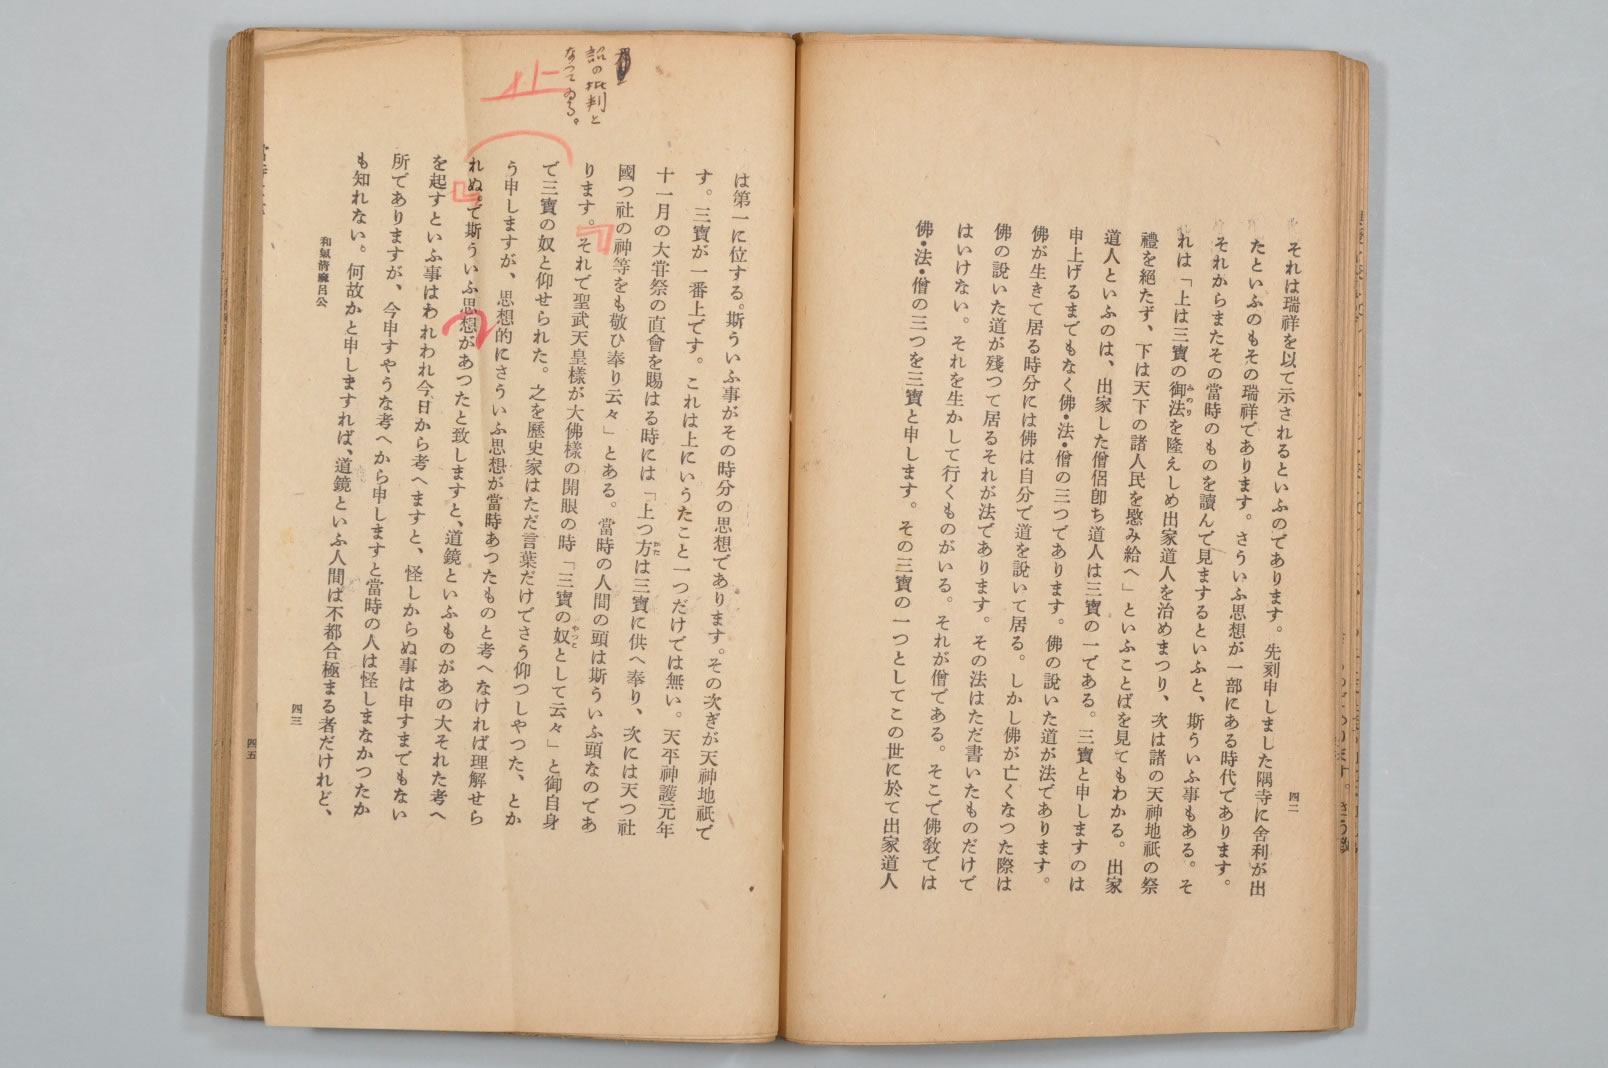 四二
それは瑞祥を以て示されるといふのであります。先刻申しました隅寺に舍利が出
たといふのもその瑞祥であります。さういふ思想が一部にある時代であります。
それからまたその當時のものを讀んで見まするといふと、斯ういふ事もある。そ
れは「上は三寶の御法を隆えしめ出家道人を治めまつり、次は諸の天神地祇の祭
みのり
禮を絶たず、下は天下の諸人民を愍み給へ」といふことばを見てもわかる。出家
道人といふのは、出家した僧侶卽ち道人は三寶の一である。三寶と申しますのは
申上げるまでもなく佛・法・僧の三つであります。佛の說いた道が法であります。
佛が生きて居る時分には佛は自分で道を說いて居る。しかし佛が亡くなつた際は
佛の說いた道が殘つて居るそれが法であります。その法はただ書いたものだけで
はいけない。それを生かして行くものがいる。それが僧である。そこで佛敎では
佛・法・僧の三つを三寶と申します。その三寶の一つとしてこの世に於て出家道人
は第一に位する。斯ういふ事がその時分の思想であります。その次ぎが天神地祇で
す。三寶が一番上です。これは上にいうたこと一つだけでは無い。天平神護元年
十一月の大甞祭の直會を賜はる時には「上つ方は三寶に供へ奉り、次には天つ社
國つ社の神等をも敬ひ奉り云々」とある。當時の人間の頭は斯ういふ頭なのであ
ります。それで聖武天皇樣が大佛樣の開眼の時「三寶の奴として云々」と御自身
やつこ
で三寶の奴と仰せられた。之を歷史家はただ言葉だけでさう仰つしやつた、とか
う申しますが、思想的にさういふ思想が當時あつたものと考へなければ理解せら
れぬ。で斯ういふ思想があつたと致しますと、道鏡といふものがあの大それた考へ
を起すといふ事はわれわれ今日から考へますと、怪しからぬ事は申すまでもない
所でありますが、今申すやうな考へから申しますと當時の人は怪しまなかつたか
も知れない。何故かと申しますれば、道鏡といふ人間は不都合極まる者だけれど、
和氣淸麻呂公
四三
詔の批判と
なつてゐる。
止
四五